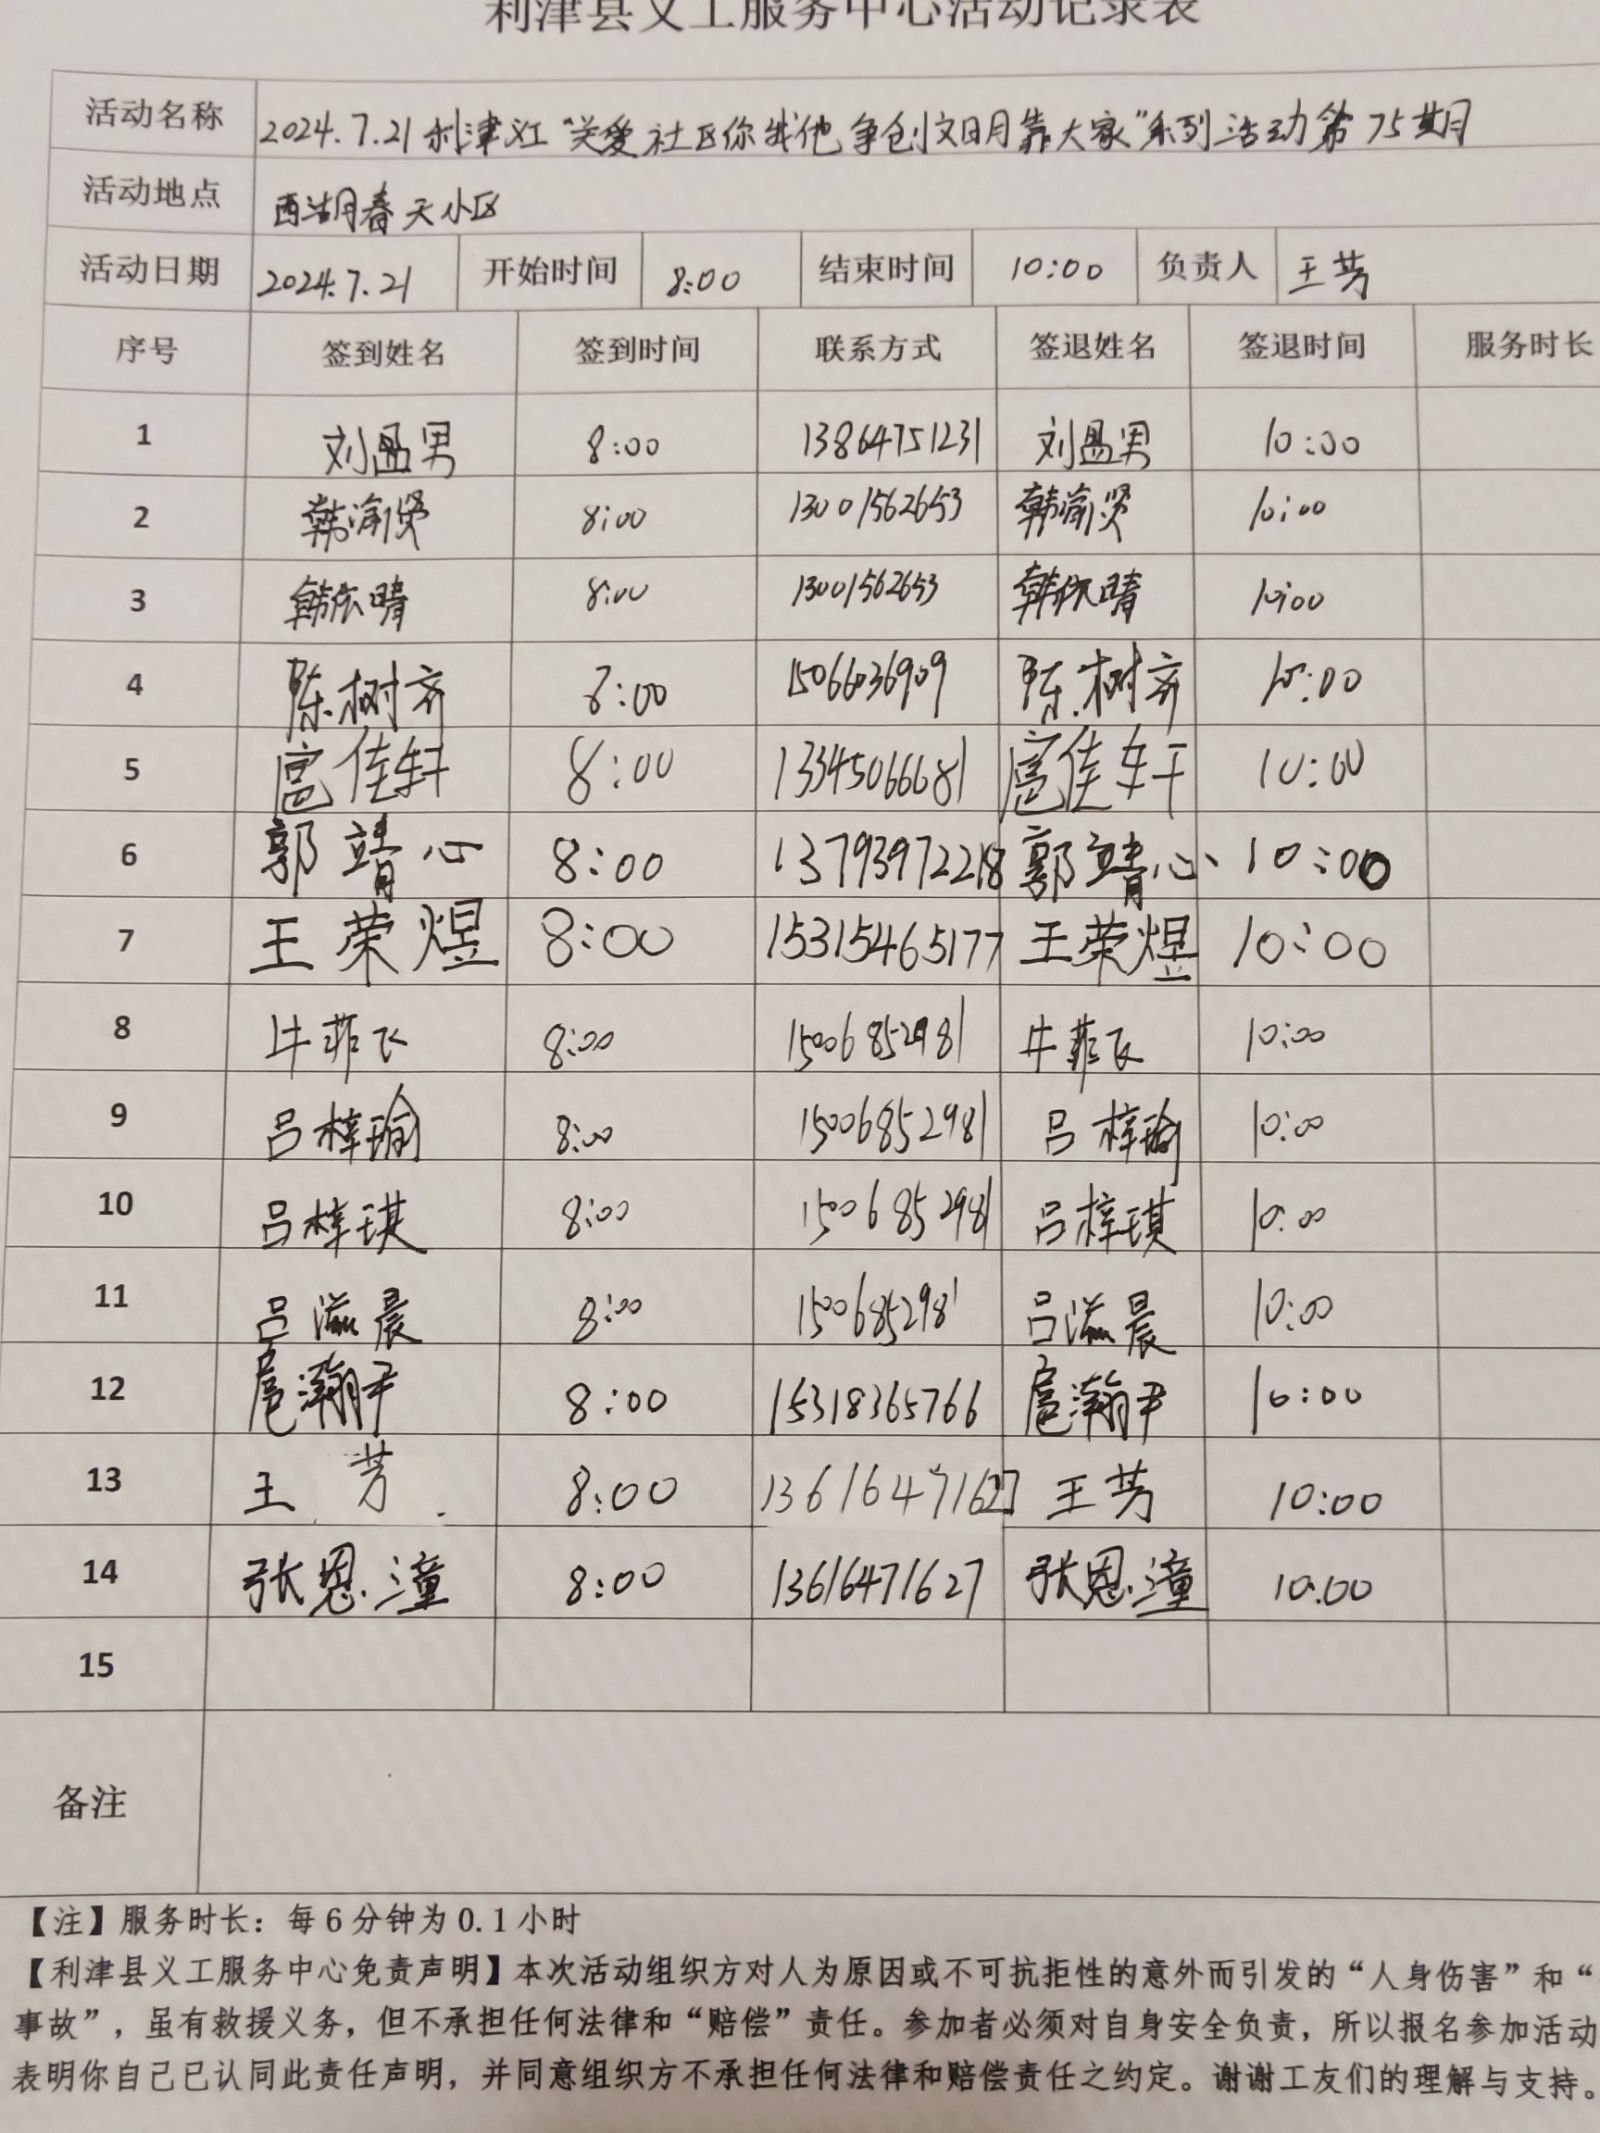 利津县义工服务中心活动记录表
活动名称 2024.7.21利津义工“关爱社区你我他 争创文明靠大家”系列活动第75期
活动地点 西湖春天小区
活动日期 2024.7.21 开始时间 8:00 结束时间 10:00 负责人 王芳
序号 签到姓名 签到时间 联系方式 签退姓名 签退时间 服务时长
1 刘昷男 8:00 13864751231 刘昷男 10:00
2 韩渝贤 8:00 13001562653 韩渝贤 10:00
3 韩依晴 8:00 13001562653 韩依晴 10:00
4 陈树齐 8:00 陈树齐 10:00
5 扈佳轩 8:00 13345066681 扈佳轩 10:00
6 郭靖心 8:00 13793972218 郭靖心 10:00
7 王荣煜 8:00 15315465177 王荣煜 10:00
8 牛菲飞 8:00 15006852981 牛菲飞 10:00
9 吕梓瑜 8:00 15006852981 吕梓瑜 10:00
10 吕梓琪 8:00 15006852981 吕梓琪 10:00
11 吕溢晨 8:00 15006852981 吕溢晨 10:00
12 扈瀚尹 8:00 15318365766 扈瀚尹 10:00
13 王芳 8:00 13616471627 王芳 10:00
14 张恩潼 8:00 13616471627 张恩潼 10.00
15
备注
【注】服务时长：每6分钟为0.1小时
【利津县义工服务中心免责声明】本次活动组织方对人为原因或不可抗拒性的意外而引发的“人身伤害”和“
事故”，虽有救援义务，但不承担任何法律和“赔偿”责任。参加者必须对自身安全负责，所以报名参加活动
表明你自己已认同此责任声明，并同意组织方不承担任何法律和赔偿责任之约定。谢谢工友们的理解与支持。